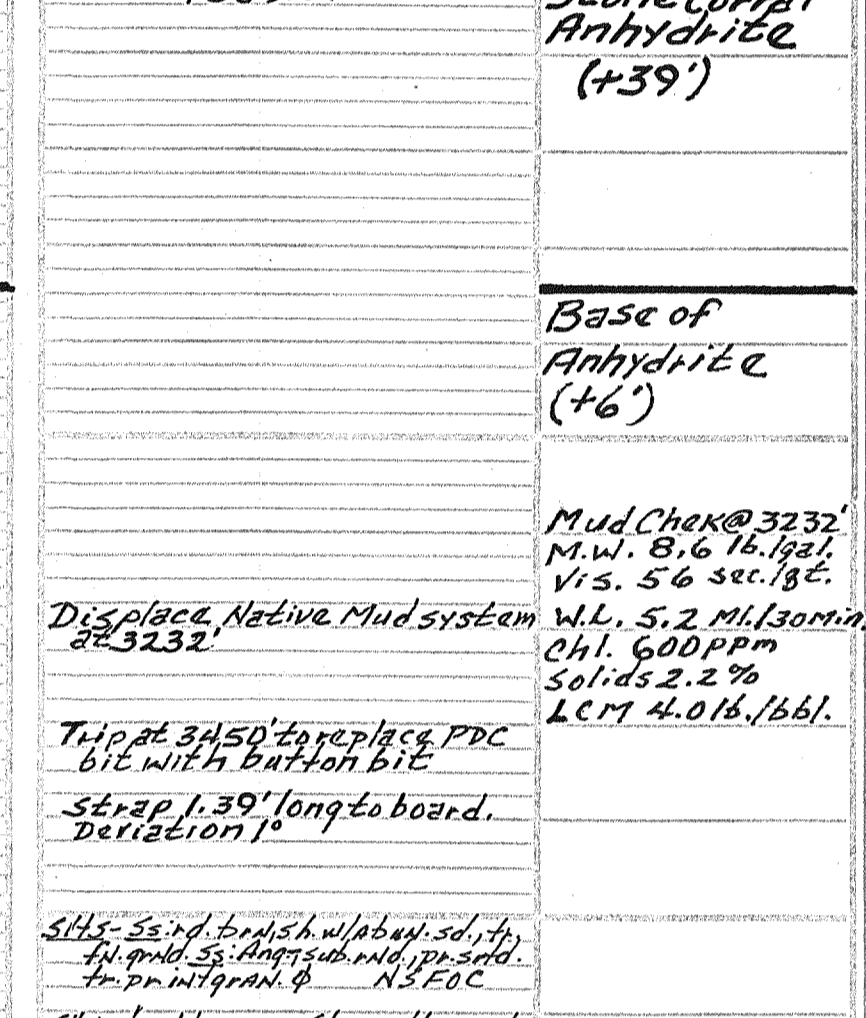 Anhydrite
(+39')
Base of
Anhydrite
(+6')
Mud Chek@3232'
M.W. 8.6 lb./gal.
Vis. 56 sec./qt.
W.L. 5.2 Ml./30min.
Chl. 600ppm
Solids 2.2%
LCM 4.0 lb./bbl.
Displace Native Mud system
at 3232'
Trip at 3450' to replace PDC
bit with button bit
Strap 1.39' long to board.
Deviation 1°
Slts-Ss: rd. brn, sh. w/Abun. sd., tr.
fn. grnd. Ss: Ang-sub. rnd., pr. srtd.
tr. pr intgran. φ NSFOC